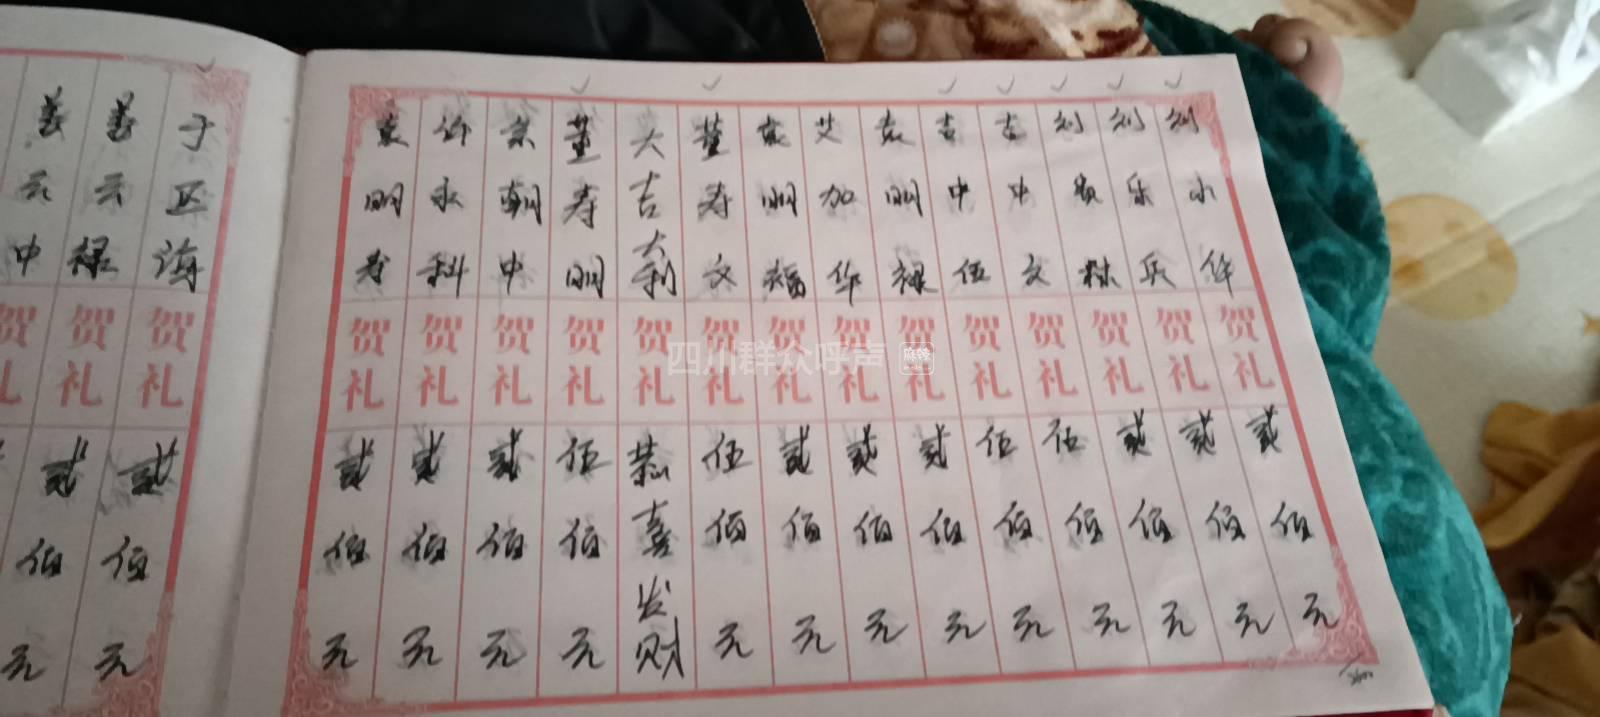 刘小华 贺礼 贰佰元
刘乐兵 贺礼 贰佰元
刘贤林 贺礼 贰佰元
吉中文 贺礼 伍佰元
吉中伍 贺礼 伍佰元
袁明禄 贺礼 贰佰元
艾加华 贺礼 贰佰元
袁明福 贺礼 贰佰元
董寿文 贺礼 伍佰元
大吉大利 贺礼 恭喜发财
董寿明 贺礼 伍佰元
朝中 贺礼 贰佰元
许永科 贺礼 贰佰元
袁明寿 贺礼 贰佰元
于海 贺礼 贰佰元
姜云禄 贺礼 贰佰元
姜云中 贺礼 元
四川群众呼声 麻辣